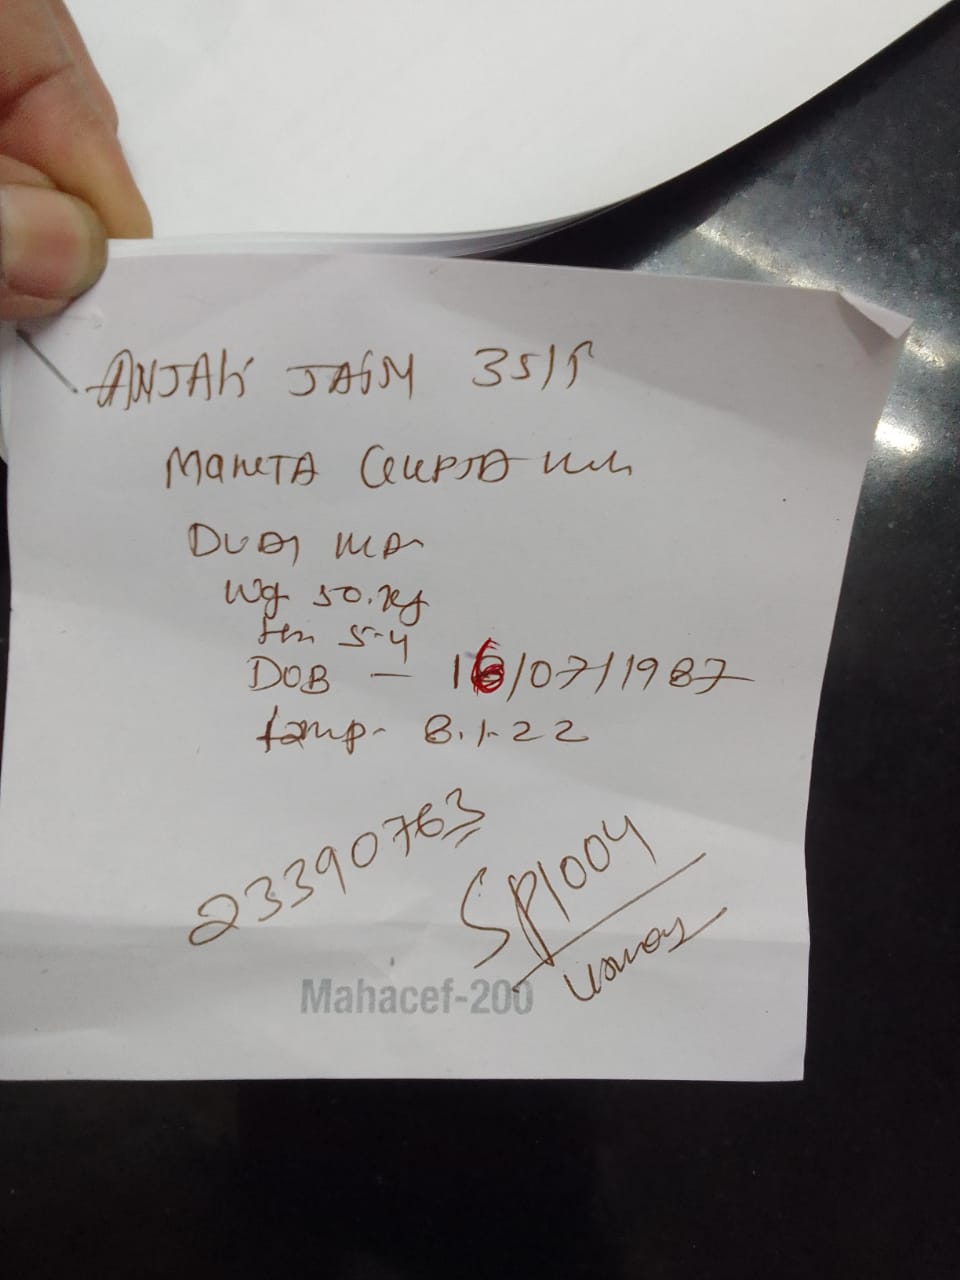 ANJALI JAIN 35/F
MAMTA GUPTA
DUAL MA
Wg 50.kg
5-4
DOB - 16/07/1987
Lamp- 8.1-22
23390763
SP1004
Mahacef-200